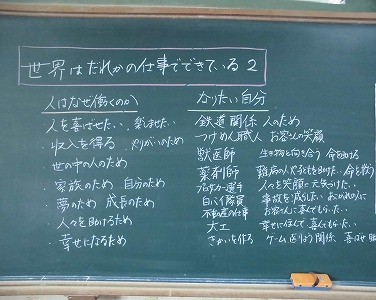 世界はだれかの仕事でできている 2
人はなぜ働くのか
・人を喜ばせたい、楽しませたい
・収入を得る やりがいのため
・世の中の人のため
・家族のため 自分のため
・夢のため 成長のため
・人々を助けるため
・幸せになるため
なりたい自分
鉄道関係 人のため
つけめん職人 お客さんの笑顔
獣医師 生き物と向き合う 命を助ける
薬剤師 難病の人や子どもを助けたい 命を救う
プロサッカー選手 人々を笑顔に 元気づけたい
白バイ隊員 事故を減らしたい あこがれの人に
不動産の仕事 お客さんに喜んでもらったい
大工 幸せに住んで 喜んでもらったい
ゲーム 関係 喜ばせ